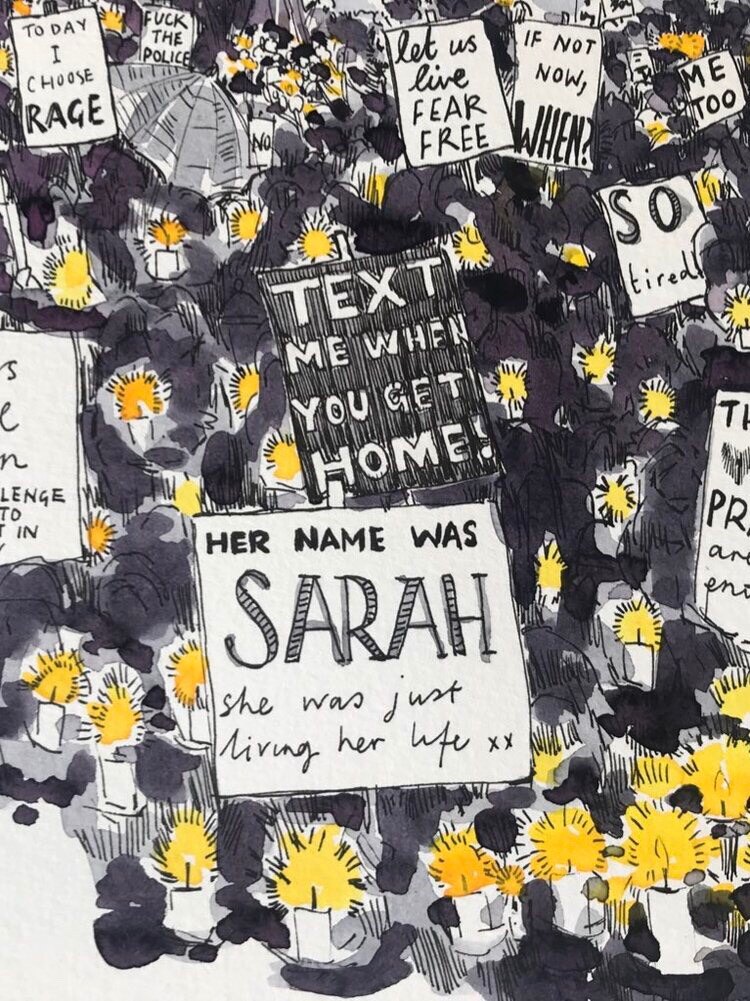 TO DAY
I
CHOOSE
RAGE
FUCK
THE
POLICE
NO
let us
live
FEAR
FREE
IF NOT
NOW,
WHEN?
ME
TOO
SO
tired
TEXT
ME WHEN
YOU GET
HOME!
LENGE
TO
IN
HER NAME WAS
SARAH
she was just
living her life xx